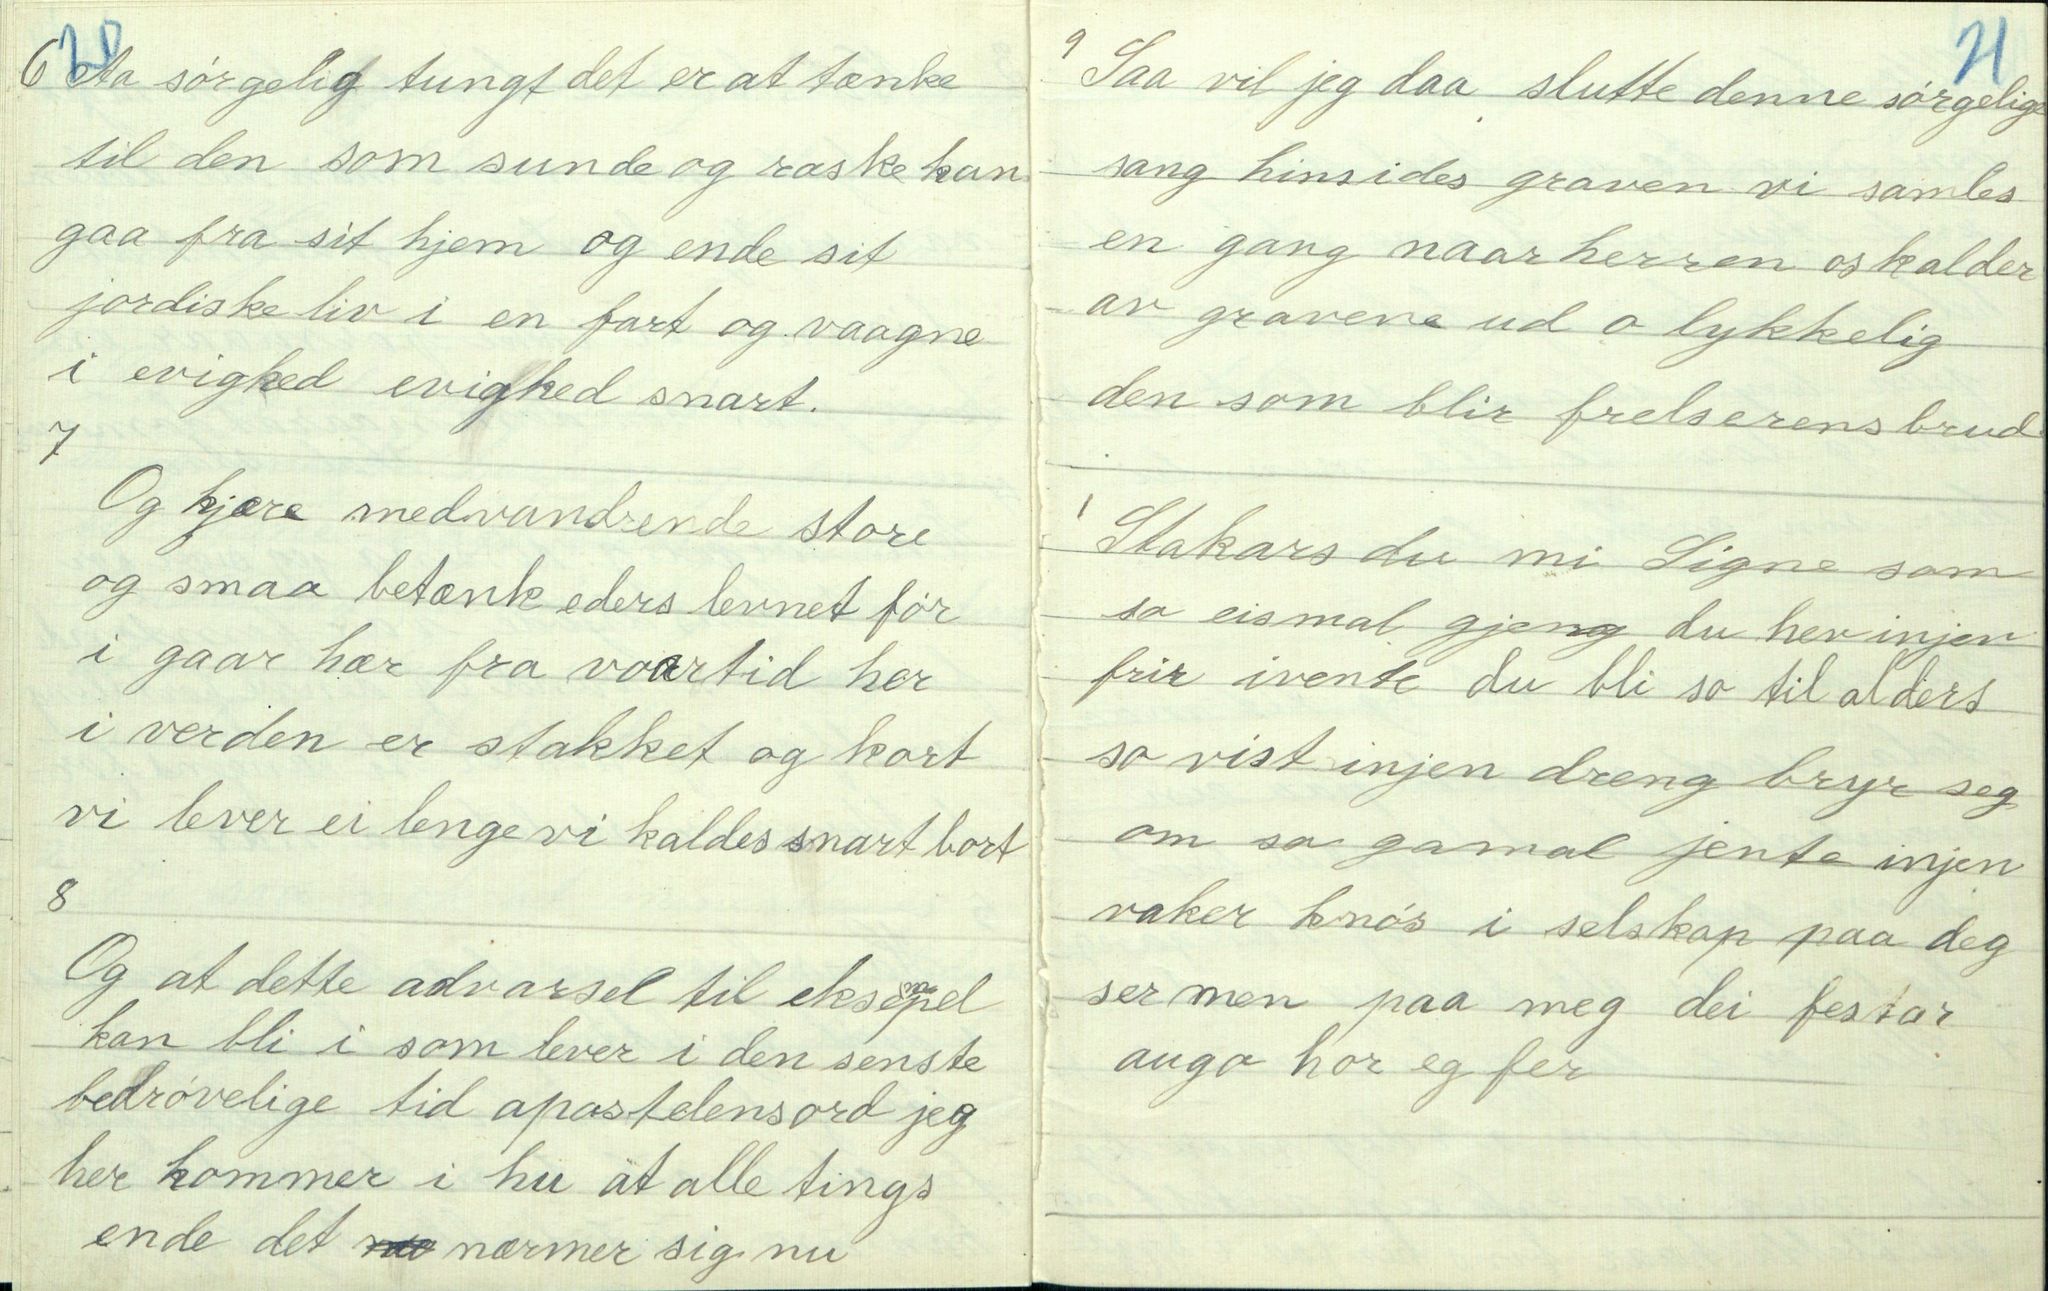 20
6 Aa sørgelig tungt det er at tænke
til den som sunde og raske kan
gaa fra sit hjem og ende sit
jordiske liv i en fart og vaagne
i evighed evighed snart.
7
Og kjære medvandrende store
og smaa betænk eders levnet før
i gaar hær fra vaartid her
i verden er stakket og kort
vi lever ei lenge vi kaldes snart bort
8
Og at dette advarsel til eksempel
kan bli i som lever i den senste
bedrøvelige tid apostelens ord jeg
her kommer i hu at alle tings
ende det nærmer sig nu
21
9 Saa vil jeg daa slutte denne sørgelige
sang hinsides graven vi samles
en gang naar herren os kalder
av gravene ud o lykkelig
den som blir frelserens brud
1 Stakars du mi Signe som
so eismal gjeng du hev injen
frir ivente du bli so til alders
so vist injen dreng bryr seg
om sa gamal jente injen
vaker knøs i selskap paa deg
ser men paa meg dei festar
augo hor eg fer